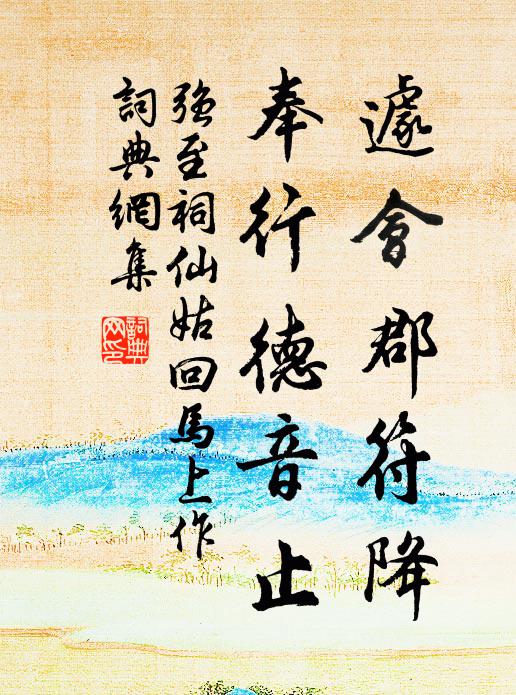 遽會郡符降
奉行德音止
強至祠仙姑回馬上作
詞典網集
詞典
网印